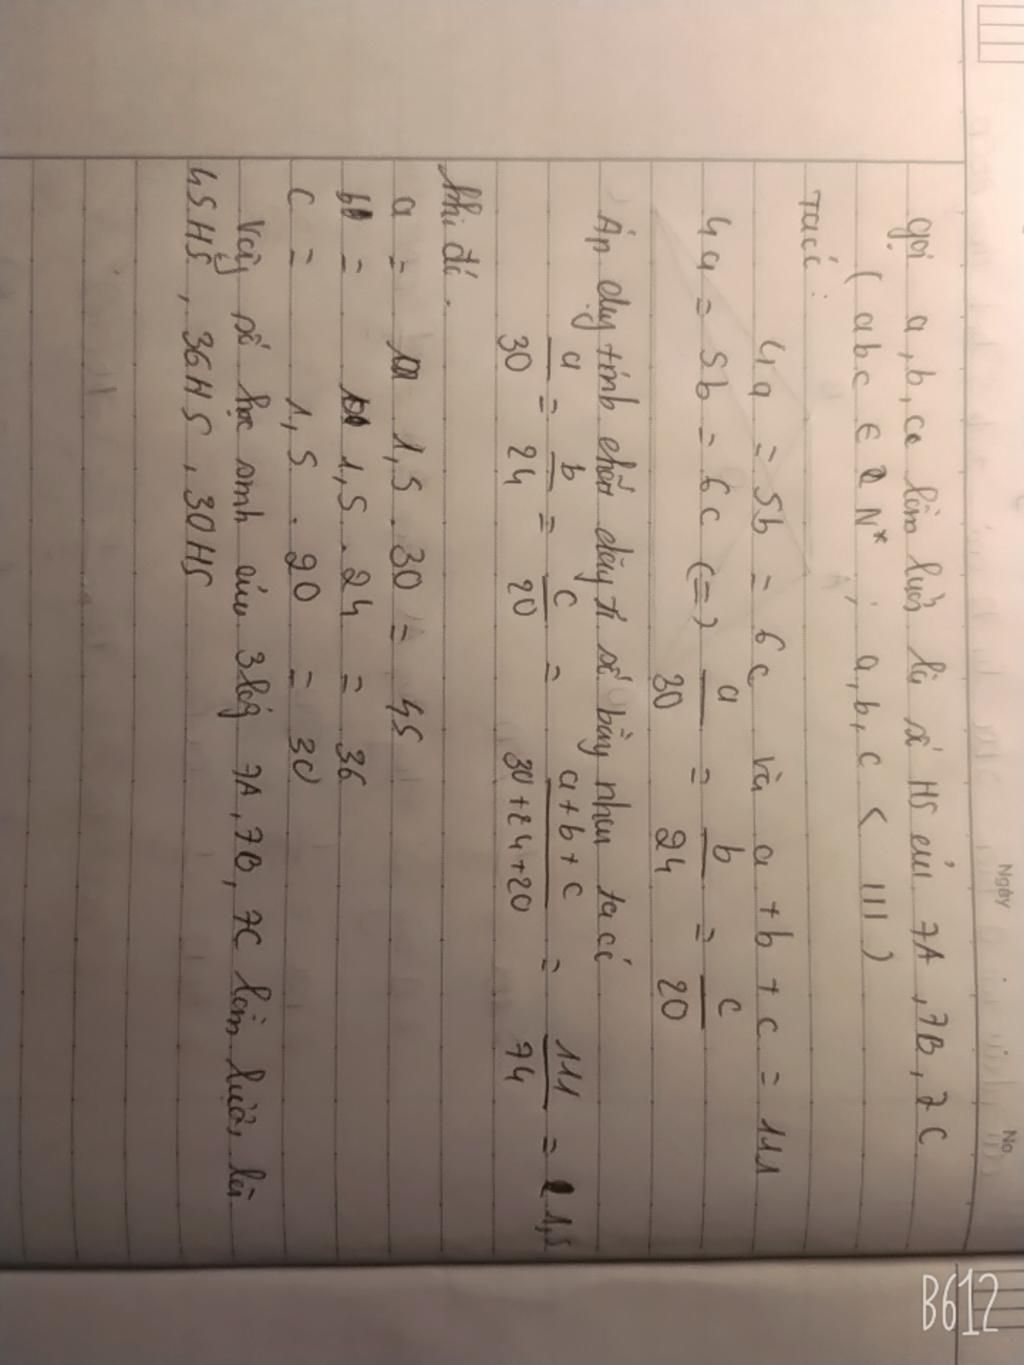 Ngày
No.
gọi a, b, c lần lượt là số HS của 7A, 7B, 7C
( a b c ∈ N* ; a, b, c < 111 )
Ta có :
4a = 5b = 6c và a + b + c = 111
4a = 5b = 6c (=) a/30 = b/24 = c/20
Áp dụng tính chất dãy tỉ số bằng nhau ta có
a/30 = b/24 = c/20 = a+b+c/30+24+20 = 111/74 = 1,5
khi đó .
a = 1,5 . 30 = 45
b = 1,5 . 24 = 36
c = 1,5 . 20 = 30
Vậy số học sinh của 3 lớp 7A, 7B, 7C lần lượt là
45HS, 36HS, 30HS
B612